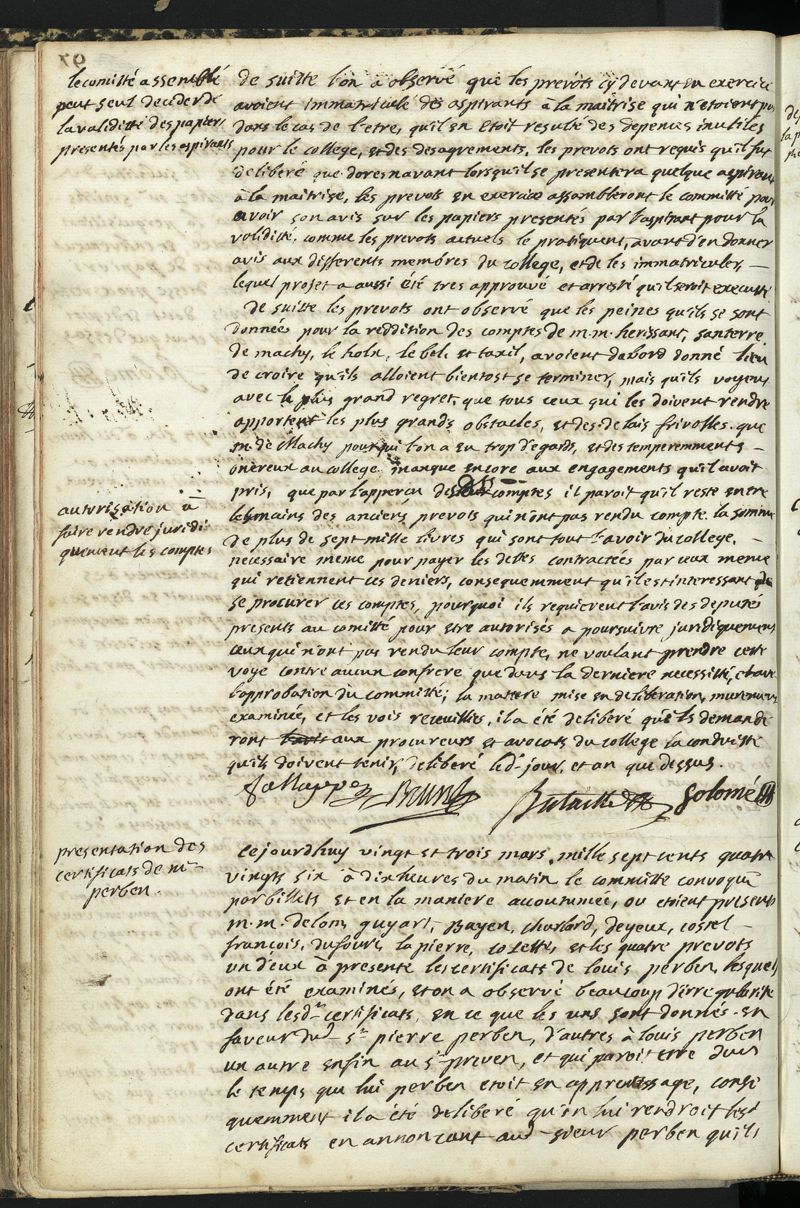 le comitté assemblé
peut seul decider de
la validitté des papiers
presentés par les aspirants
de suitte l'on a observé que les prevots cy devant en exercice
avoient immatriculé des aspirants à la maitrise qui n'etoient pas
dans le cas de l'etre, qu'il en etoit resulté des depences inutiles
pour le college, et des desagrements, les prevots ont requis qu'il fut
deliberé que doresnavant lorsqu'il se presentera quelque aspirant
à la maitrise, les prevots en exercice assembleront le committé pour
avoir son avis sur les papiers presentés par l'aspirant pour la
validitté, comme les prevots actuels le pratiquent, avant d'en donner
avis aux differents membres du college, et de les immatriculer, —
lequel projet a aussi été tres approuvé et arresté qu'il seroit executé
de suitte les prevots ont observé que les peines qu'ils se sont
données pour la reddition des comptes de m.m. herissant, santerre,
de machy, le holn, le bel, et taxil, avoient dabord donné lieu
de croire qu'ils alloient bientost se terminer, mais qu'ils voyent
avec le plus grand regret, que tous ceux qui les doivent rendre
apportent les plus grands obstacles, et des delais frivolles. que
m. de Machy pour qui l'on a eu trop d'egards, et des temperemments -
onereux au college manque encore aux engagements qu'il avoit
pris, que par l'appercu des comptes il paroit qu'il reste entre
les mains des anciens prevots qui n'ont pas rendu compte la somme
de plus de sept mille livres qui sont tout l'avoir du college, —
autorisation à
faire rendre juridi
quement les comptes
necessaire meme pour payer les dettes contractées par ceux meme
qui retiennent ces deniers, consequemment qu'il est interessant de
se procurer ces comptes, pourquoi ils requierent l'avis des deputés
presents au comitté pour etre autorisés a poursuivre juridiquement
ceux qui n'ont pas rendu leur compte, ne voulant prendre cette
voye contre aucun confrere que dans la derniere necessité, et avec
l'approbation du committé; la matiere mise en deliberation, murement
examinée, et les voix receuillies, il a été deliberé qu'ils demande
ront aux procureurs et avocats du college la conduitte
qu'ils doivent tenir, deliberé led. jour, et an que dessus.
Brun Bataille Solomé
presentation des
certificats de mr
perben.
Cejourdhuy vingt et trois mars, mille sept cents quatre
vingts six à dix heures du matin le committé convoqué
par billets et en la maniere accoutumée, ou etoient presents
m.m. delom, guyart, Bayen, charlard, deyeux, costel -
françois, dufour, la pierre, colette, et les quatre prevots
un d'eux à presenté les certificats de louis perben, lesquels
ont été examinés, et on a observé beaucoup d'irregularité
dans lesd. certificats, en ce que les uns sont donnés en
faveur du sr pierre perben, d'autres à louis perben
un autre enfin au sr preven, et qui paroit etre dans
le temps que lui perben etoit en apprentissage, conse
quemment il a été deliberé qu'on lui rendroit lesd.
certificats en annoncant aud. sieur perben qu'ils